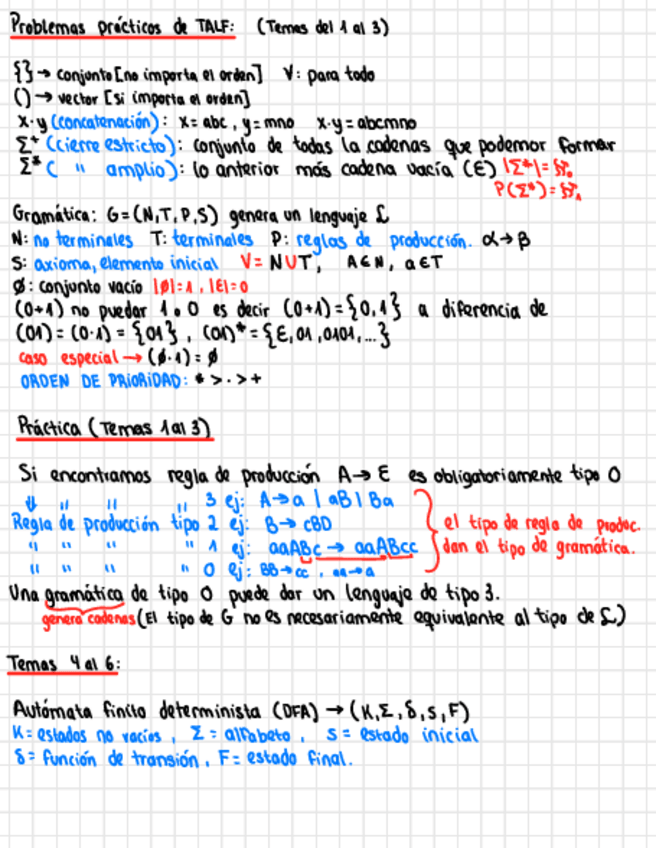 Problemas prácticos de TALF: (Temas del 1 al 3)
{} → conjunto [no importa el orden] ∀: para todo
() → vector [si importa el orden]
x·y (concatenación): x = abc, y = mno x·y = abcmno
Σ⁺ (cierre estricto): conjunto de todas la cadenas que podemor formar
Σ* ( " amplio): lo anterior más cadena vacía (ε) |Σ*| =
P(Σ*) =
Gramática: G = (N,T,P,S) genera un lenguaje L
N: no terminales T: terminales P: reglas de producción. α → β
S: axioma, elemento inicial V = N U T, A ∈ N, a ∈ T
ø: conjunto vacío |ø| = 1, |ε| = 0
(0+1) no puedar 1 o 0 es decir (0+1) = {0,1} a diferencia de
(01) = (0·1) = {01}, (01)* = {ε, 01, 0101, ...}
caso especial → (ø·1) = ø
ORDEN DE PRIORIDAD: * > · > +
Práctica (Temas 1 al 3)
Si encontramos regla de producción A → ε es obligatoriamente tipo 0
" " " 3 ej: A → a | aB | Ba
Regla de producción tipo 2 ej: B → cBD
" " " " 1 ej: aaABc → aaABcc
" " " " 0 ej: BB → cc, aa → a
el tipo de regla de produc.
dan el tipo de gramática.
Una gramática de tipo 0 puede dar un lenguaje de tipo 3.
genera cadenas (El tipo de G no es necesariamente equivalente al tipo de L)
Temas 4 al 6:
Autómata finito determinista (DFA) → (K, Σ, δ, s, F)
K = estados no vacíos, Σ = alfabeto, s = estado inicial
δ = función de transión, F = estado final.